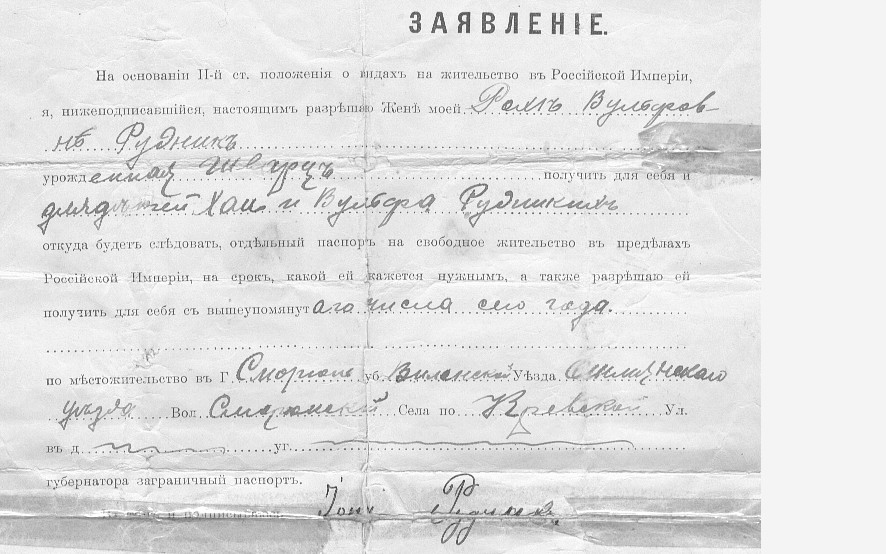 ЗАЯВЛЕНІЕ.
На основаніи II-й ст. положенія о видахъ на жительство въ Россійской Имперіи,
я, нижеподписавшійся, настоящимъ разрѣшаю Женѣ моей Рохлѣ Вульфов-
нѣ Рудникъ
урожденная Шварцъ получить для себя и
для дѣтей Хаи и Вульфа Рудникихъ
откуда будетъ слѣдовать, отдѣльный паспорѣ на свободное жительство въ предѣлахъ
Россійской Имперіи, на срокъ, какой ей кажется нужнымъ, а также разрѣшаю ей
получить для себя съ вышеупомянутаго числа сего года.
по мѣстожительство въ Г Сморгонь уб Виленской Уѣзда Ошмянскаго
уѣзда Вол. Сморгонской Села по Кревской Ул.
въ д уг
губернатора заграничный паспортъ.
Рудникъ